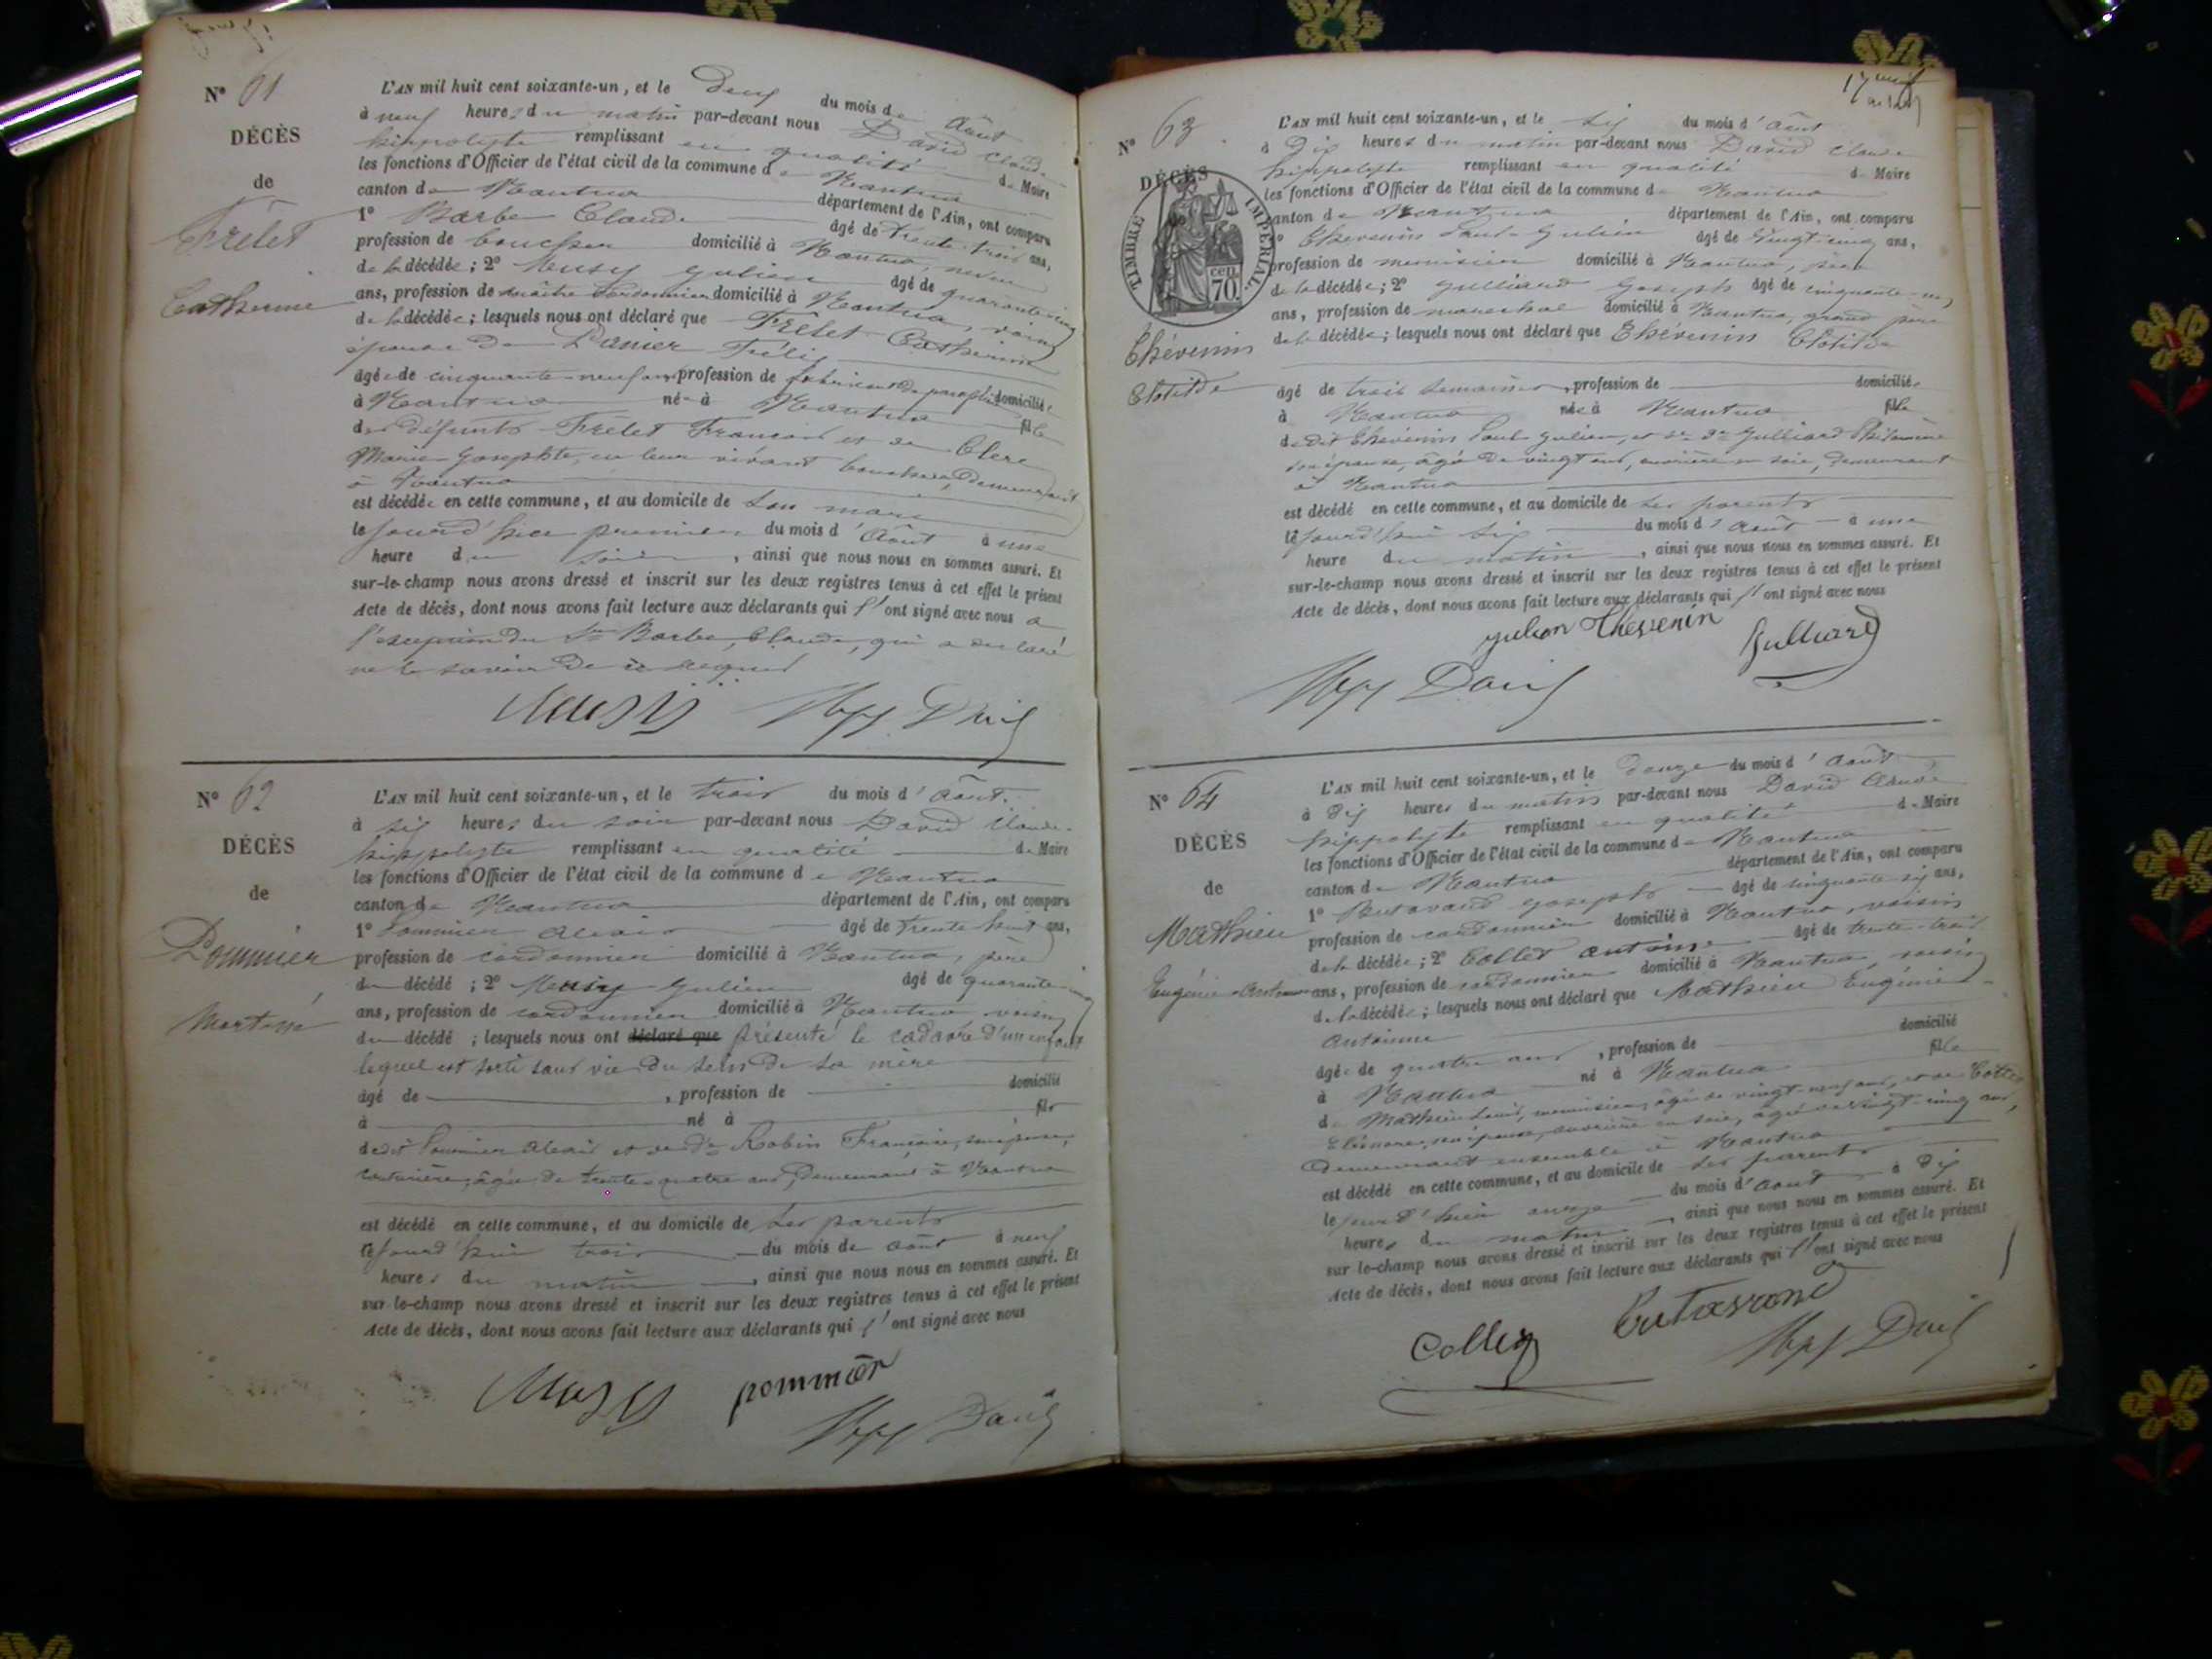 N° 61
DÉCÈS
de
Frélet
Catherine
L'AN mil huit cent soixante-un, et le deux du mois de Août
à neuf heures du matin par-devant nous David Claude
hippolyte remplissant en qualité de Maire
les fonctions d'Officier de l'état civil de la commune de Nantua
canton de Nantua département de l'Ain, ont comparu
1° Barbe Claude âgé de trente-trois ans,
profession de boucher domicilié à Nantua, neveu
de la décédée; 2° Musy Julien âgé de quarante-cinq
ans, profession de maître cordonnier domicilié à Nantua, voisin
de la décédée; lesquels nous ont déclaré que Frélet Catherine
épouse de Panier Félix
âgée de cinquante-neuf ans profession de fabricant de parapluie domiciliée
à Nantua née à Nantua fille
des défunts Frélet François et de Clerc
Marie Josephte, en leur vivant bouchers, demeurant
à Nantua
est décédée en cette commune, et au domicile de son mari
le jourd'hier premier du mois d'Août à une
heure du soir, ainsi que nous nous en sommes assuré. Et
sur-le-champ nous avons dressé et inscrit sur les deux registres tenus à cet effet le présent
Acte de décès, dont nous avons fait lecture aux déclarants qui l'ont signé avec nous a
l'exception du Sr Barbe, Claude, qui a déclaré
ne le savoir de ce requis
Musy Hyp David
N° 62
DÉCÈS
de
Pommier
Mort-né
L'AN mil huit cent soixante-un, et le trois du mois d'Août.
à six heures du soir par-devant nous David Claude
hippolyte remplissant en qualité de Maire
les fonctions d'Officier de l'état civil de la commune de Nantua
canton de Nantua département de l'Ain, ont comparu
1° Pommier Alexis âgé de trente huit ans,
profession de cordonnier domicilié à Nantua, père
du décédé; 2° Musy Julien âgé de quarante-cinq
ans, profession de cordonnier domicilié à Nantua voisin
du décédé; lesquels nous ont déclaré que présenté le cadavre d'un enfant
lequel est sorti sans vie du sein de sa mère
âgé de , profession de domicilié
à né à fils
de dit Pommier Alexis et de de Robin Françoise, son épouse,
couturière, âgée de trente-quatre ans, demeurant à Nantua
est décédé en cette commune, et au domicile de ses parents
cejourd'hui trois du mois de Août à neuf
heures du matin, ainsi que nous nous en sommes assuré. Et
sur-le-champ nous avons dressé et inscrit sur les deux registres tenus à cet effet le présent
Acte de décès, dont nous avons fait lecture aux déclarants qui l'ont signé avec nous
Musy pommier
Hyp David
N° 63
DÉCÈS
TIMBRE IMPÉRIAL.
70 cen
Thévenin
Clotilde
L'AN mil huit cent soixante-un, et le six du mois d'Août
à dix heures du matin par-devant nous David Claude
hippolyte remplissant en qualité de Maire
les fonctions d'Officier de l'état civil de la commune de Nantua
canton de Nantua département de l'Ain, ont comparu
1° Thevenin Paul-Julien âgé de vingt-cinq ans,
profession de menuisier domicilié à Nantua, père
de la décédée; 2° Julliard Joseph âgé de cinquante-un
ans, profession de marechal domicilié à Nantua, grand père
de la décédée; lesquels nous ont déclaré que Thévenin Clotilde
âgé de trois semaines, profession de domiciliée
à Nantua née à Nantua fille
de dit Thévenin Paul-Julien, et de de Julliard Philomène
son épouse, âgée de vingt ans, ouvrière en soie, demeurant
à Nantua
est décédé en cette commune, et au domicile de ses parents
cejourd'hui six du mois d'Août à une
heure du matin, ainsi que nous nous en sommes assuré. Et
sur-le-champ nous avons dressé et inscrit sur les deux registres tenus à cet effet le présent
Acte de décès, dont nous avons fait lecture aux déclarants qui l'ont signé avec nous
julien Thevenin Julliard
Hyp David
N° 64
DÉCÈS
de
Mathieu
Eugénie-Antoinne
L'AN mil huit cent soixante-un, et le douze du mois d'Août
à dix heures du matin par-devant nous David Claude
hippolyte remplissant en qualité de Maire
les fonctions d'Officier de l'état civil de la commune de Nantua
canton de Nantua département de l'Ain, ont comparu
1° Butavand Joseph âgé de cinquante-six ans,
profession de cordonnier domicilié à Nantua, voisin
de la décédée; 2° Collet Antoine âgé de trente-trois
ans, profession de cordonnier domicilié à Nantua, voisin
de la décédée; lesquels nous ont déclaré que Mathieu Eugénie-
Antoinne
âgée de quatre ans, profession de domicilié
à Nantua né à Nantua fille
de Mathieu Louis, menuisier, âgé de vingt-neuf ans, et de Collet
Eléonore, son épouse, ouvrière en soie, âgée de vingt-cinq ans,
demeurant ensemble à Nantua
est décédé en cette commune, et au domicile de ses parents
le jourd'hier onze du mois d'Août à dix
heures du matin, ainsi que nous nous en sommes assuré. Et
sur le-champ nous avons dressé et inscrit sur les deux registres tenus à cet effet le présent
Acte de décès, dont nous avons fait lecture aux déclarants qui l'ont signé avec nous
Collet Butavand
Hyp David